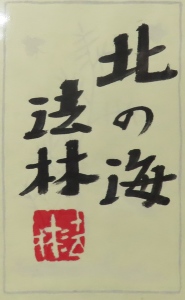 北の海
法林